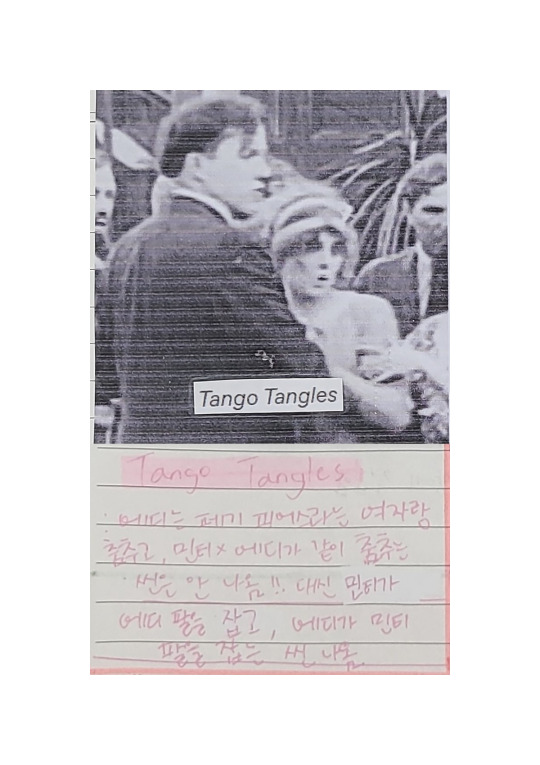 Tango Tangles
Tango Tangles
· 에디는 페기 피어스라는 여자랑
춤추고, 민터 × 에디가 같이 춤추는
씬은 안 나옴!! 대신 민터가
에디 팔을 잡고, 에디가 민터
팔을 잡는 씬 나옴